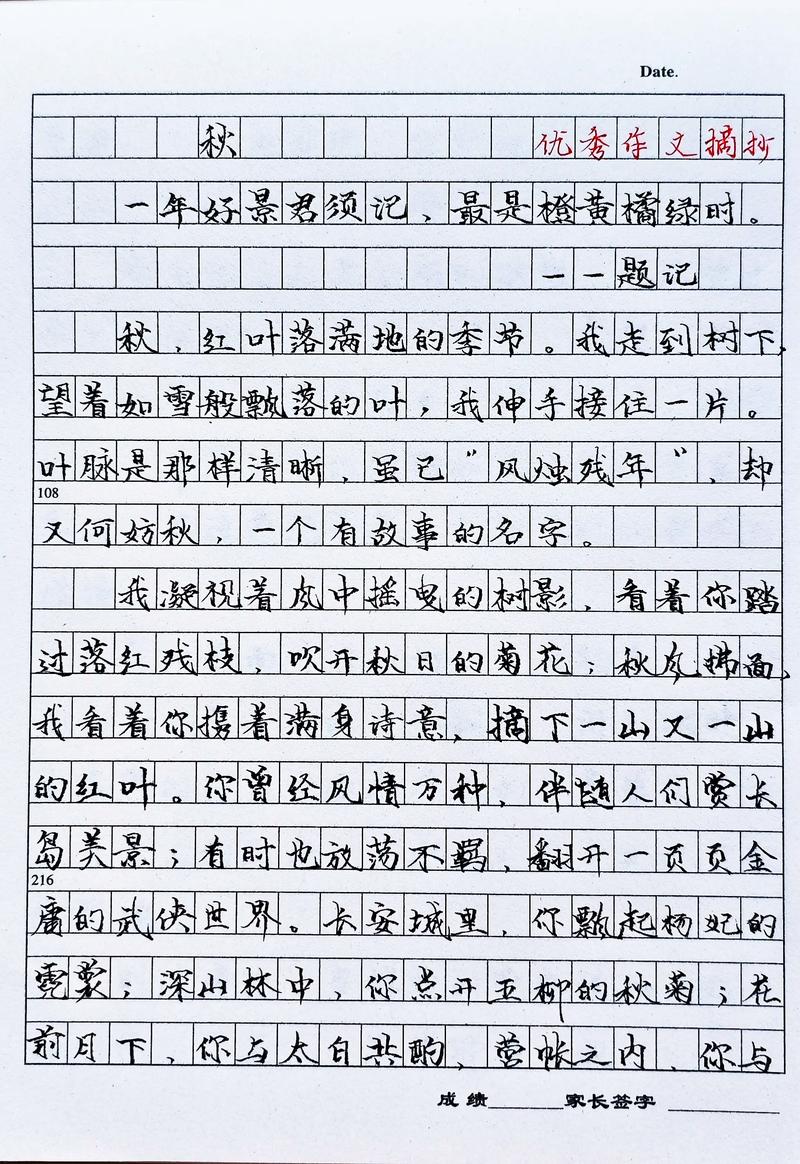 Date.
秋 优秀作文摘抄
一年好景君须记，最是橙黄橘绿时。
——题记
秋，红叶落满地的季节。我走到树下，
望着如雪般飘落的叶，我伸手接住一片。
叶脉是那样清晰，虽已“风烛残年”，却
108
又何妨秋，一个有故事的名字。
我凝视着风中摇曳的树影，看着你踏
过落红残枝，吹开秋日的菊花；秋风拂面，
我看着你携着满身诗意，摘下一山又一山
的红叶。你曾经风情万种，伴随人们赏长
岛美景；有时也放荡不羁，翻开一页页金
216
庸的武侠世界。长安城里，你飘起杨妃的
霓裳；深山林中，你点开五柳的秋菊；在
前月下，你与太白共酌，营帐之内，你与
成绩 家长签字